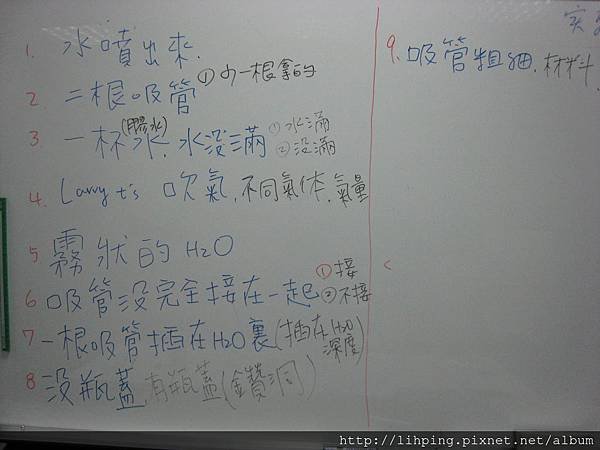 1. 水噴出來.
2. 二根吸管 ①少一根拿的
3. 一杯水(膠水), 水沒滿 ①水滿 ②沒滿
4. Larry t's 吹氣, 不同氣体, 氣量
5 霧狀的 H2O
6 吸管沒完全接在一起 ①接 ②不接
7 一根吸管插在 H2O 裏 (插在 H2O 深度)
8 沒瓶蓋, 有瓶蓋 (鑽洞)
9. 吸管粗細, 材料,
http://lihping.pixnet.net/album